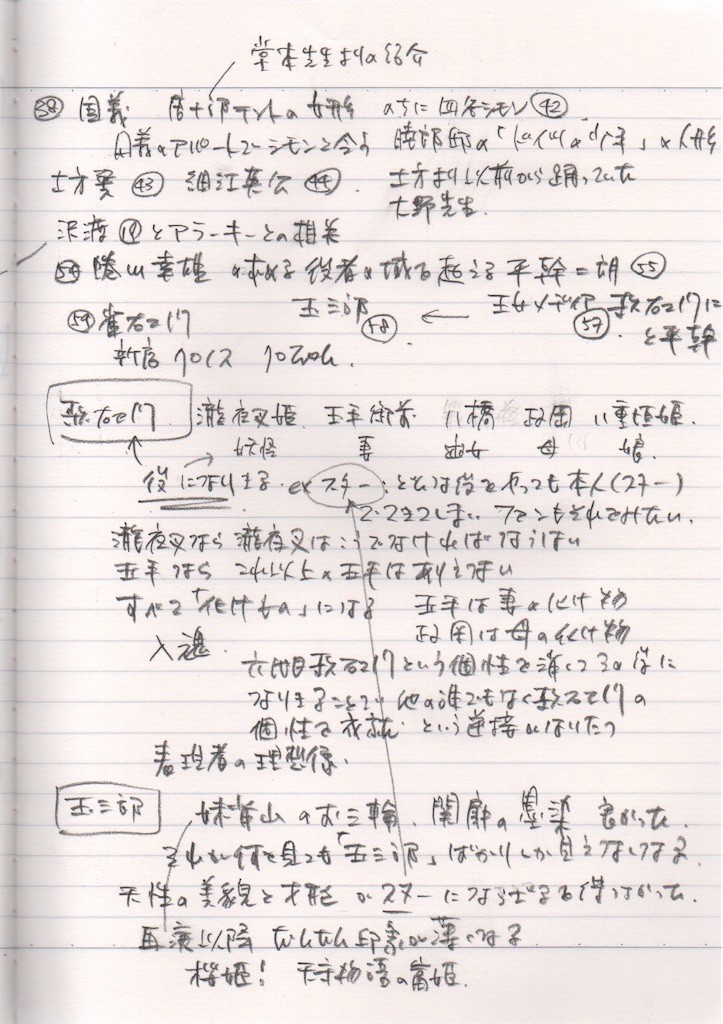 堂本先生よりの紹介
㊳ 国義 唐十郎テントの女形 のちに四谷シモン ㊷
国義のアパートでシモンと会う
土方巽 ㊸ 細江英公 ㊹ 土方より以前から踊っていた
大野先生
沢渡 ⑲ とアラーキーとの相異
㊿ 蜷川幸雄 の求める役者の域を超える平幹二朗 55
玉三郎 58 ← 王女メディア 57 歌右エ門に
と平幹
59 雀右エ門
歌右エ門 瀧夜叉姫 玉手御前 八橋 政岡 八重垣姫
妖怪 妻 遊女 母 娘
役になりきる ex スター:どんな役をやっても本人(スター)
でできてしまい ファンもそれでみたい.
瀧夜叉なら 瀧夜叉はこうでなければならない
玉手なら これ以上の玉手はありえない
すべて「化けもの」になる 玉手は妻の化け物
政岡は母の化け物
入魂
六代目歌右エ門という個性を消してその役に
なりきることで 他の誰でもなく歌右エ門の
個性で成就 という逆接がなりたつ
表現者の理想像.
玉三郎 妹背山のお三輪. 関扉の墨染 良かった.
それが何を見ても「玉三郎」ばかりしか見えなくなる
天性の美貌と才能がスターにならざるを得なかった.
再演以降 だんだん印象が薄くなる
桜姫! 天守物語の富姫.